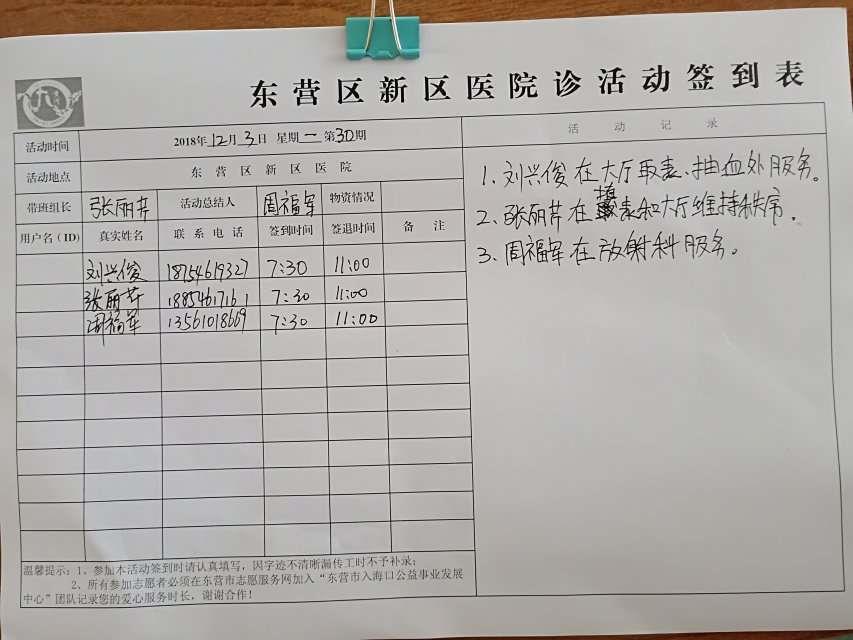 东营区新区医院诊活动签到表
活动时间 2018年12月3日 星期一 第30期
活动地点 东营区新区医院
带班组长 张丽芹 活动总结人 周福军 物资情况
用户名(ID) 真实姓名 联系电话 签到时间 签退时间 备注
刘兴俊 18754619327 7:30 11:00
张丽芹 18854617161 7:30 11:00
周福军 13561018669 7:30 11:00
温馨提示:1、参加本活动签到时请认真填写,因字迹不清晰漏传工时不予补录;
2、所有参加志愿者必须在东营市志愿服务网加入“东营市入海口公益事业发展
中心”团队记录您的爱心服务时长,谢谢合作!
活动记录
1、刘兴俊在大厅取表、抽血处服务。
2、张丽芹在填表和大厅维持秩序.
3、周福军在放射科服务。